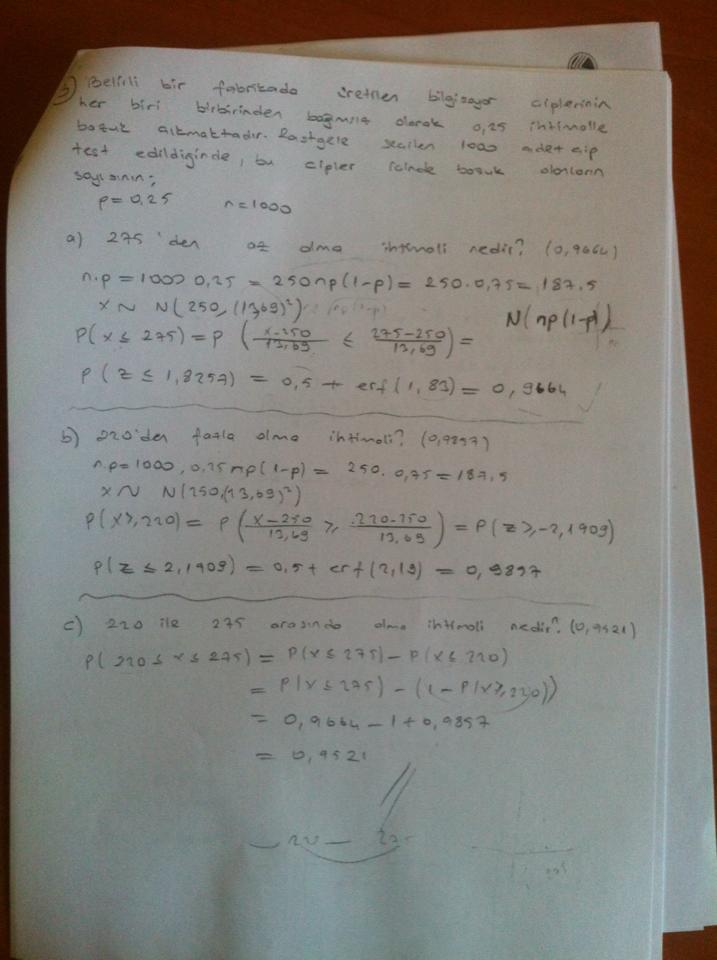 3) Belirli bir fabrikada üretilen bilgisayar ciplerinin
her biri birbirinden bağımsız olarak 0,25 ihtimalle
bozuk çıkmaktadır. Rastgele seçilen 1000 adet çip
test edildiğinde, bu cipler icinde bozuk olanların
sayısının;
p=0,25 n=1000
a) 275'den az olma ihtimali nedir? (0,9664)
n.p=1000 0,25 = 250 np(1-p) = 250.0,75= 187.5
x ~ N(250, (13,69)²) np(1-p)
N(np(1-p)
P(x ≤ 275) = P (x-250/13,69 ≤ 275-250/13,69) =
P(z ≤ 1,8257) = 0,5 + erf(1,83) = 0,9664
b) 220'den fazla olma ihtimali? (0,9857)
n.p=1000,0,25 np(1-p) = 250.0,75=187,5
x ~ N(250,(13,69)²)
P(x≥220) = P(x-250/13,69 ≥ 220-250/13,69) = P(z≥-2,1909)
P(z ≤ 2,1909) = 0,5+ erf(2,19) = 0,9857
c) 220 ile 275 arasında olma ihtimali nedir? (0,9521)
P(220 ≤ x ≤ 275) = P(x ≤ 275) - P(x ≤ 220)
= P(x ≤ 275) - (1 - P(x≥220))
= 0,9664 - 1 + 0,9857
= 0,9521
220 275